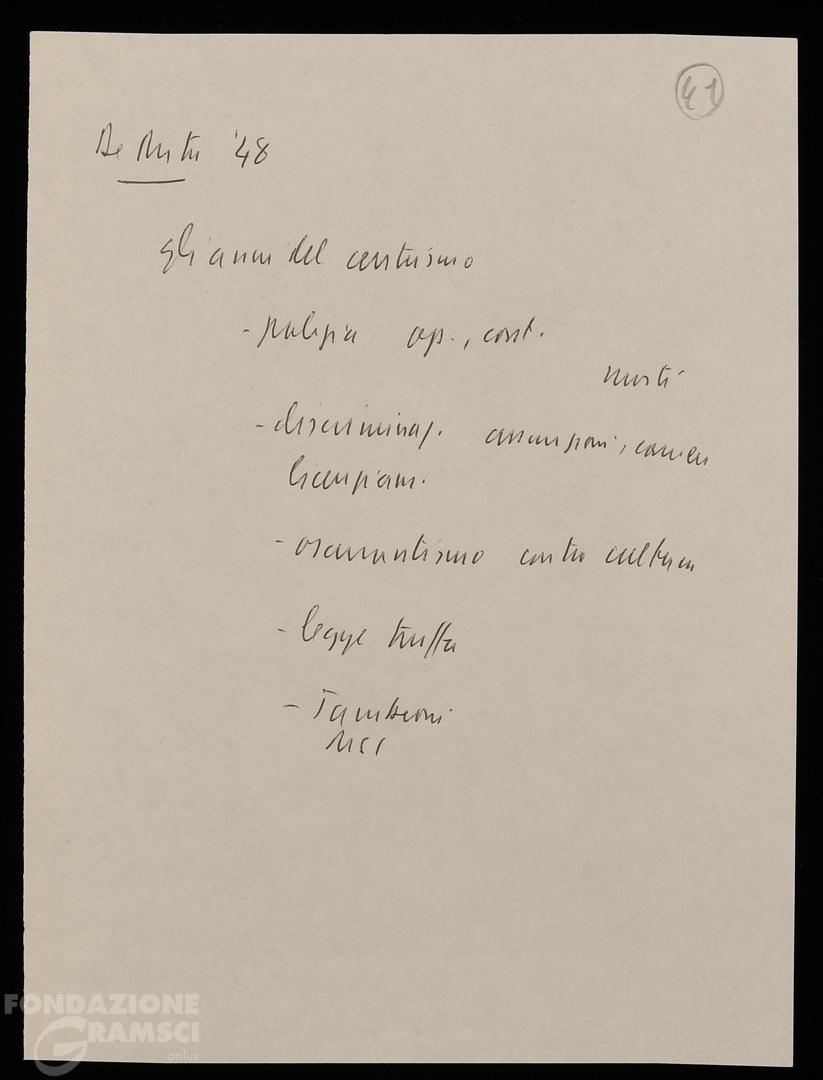 41
De Mita '48
gli anni del centrismo
- polizia op., cont.
morti
- discriminaz. assunzioni, carriera
licenziam.
- oscurantismo contro cultura
- legge truffa
- Tambroni
FONDAZIONE
GRAMSCI
onlus